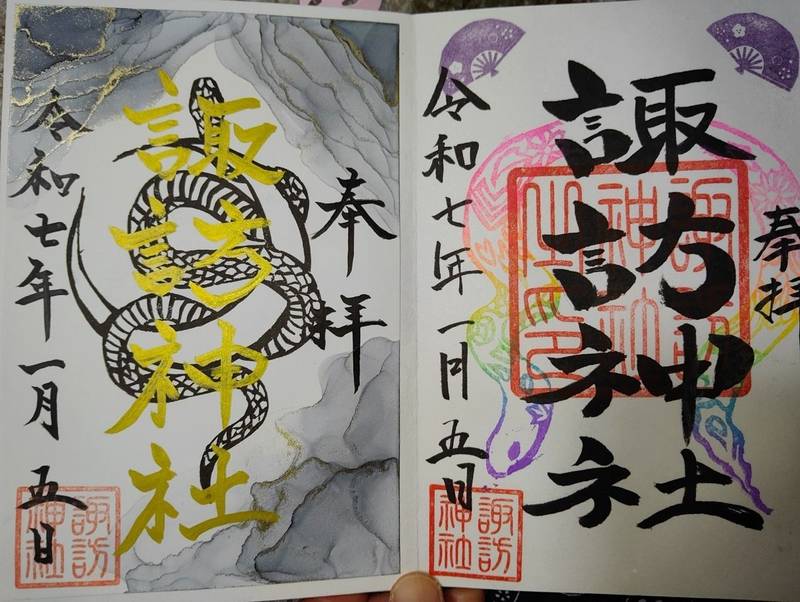 奉拝
諏訪神社
令和七年一月五日
諏訪神社
奉拝
諏訪神社
諏訪神社之印
令和七年一月五日
諏訪神社